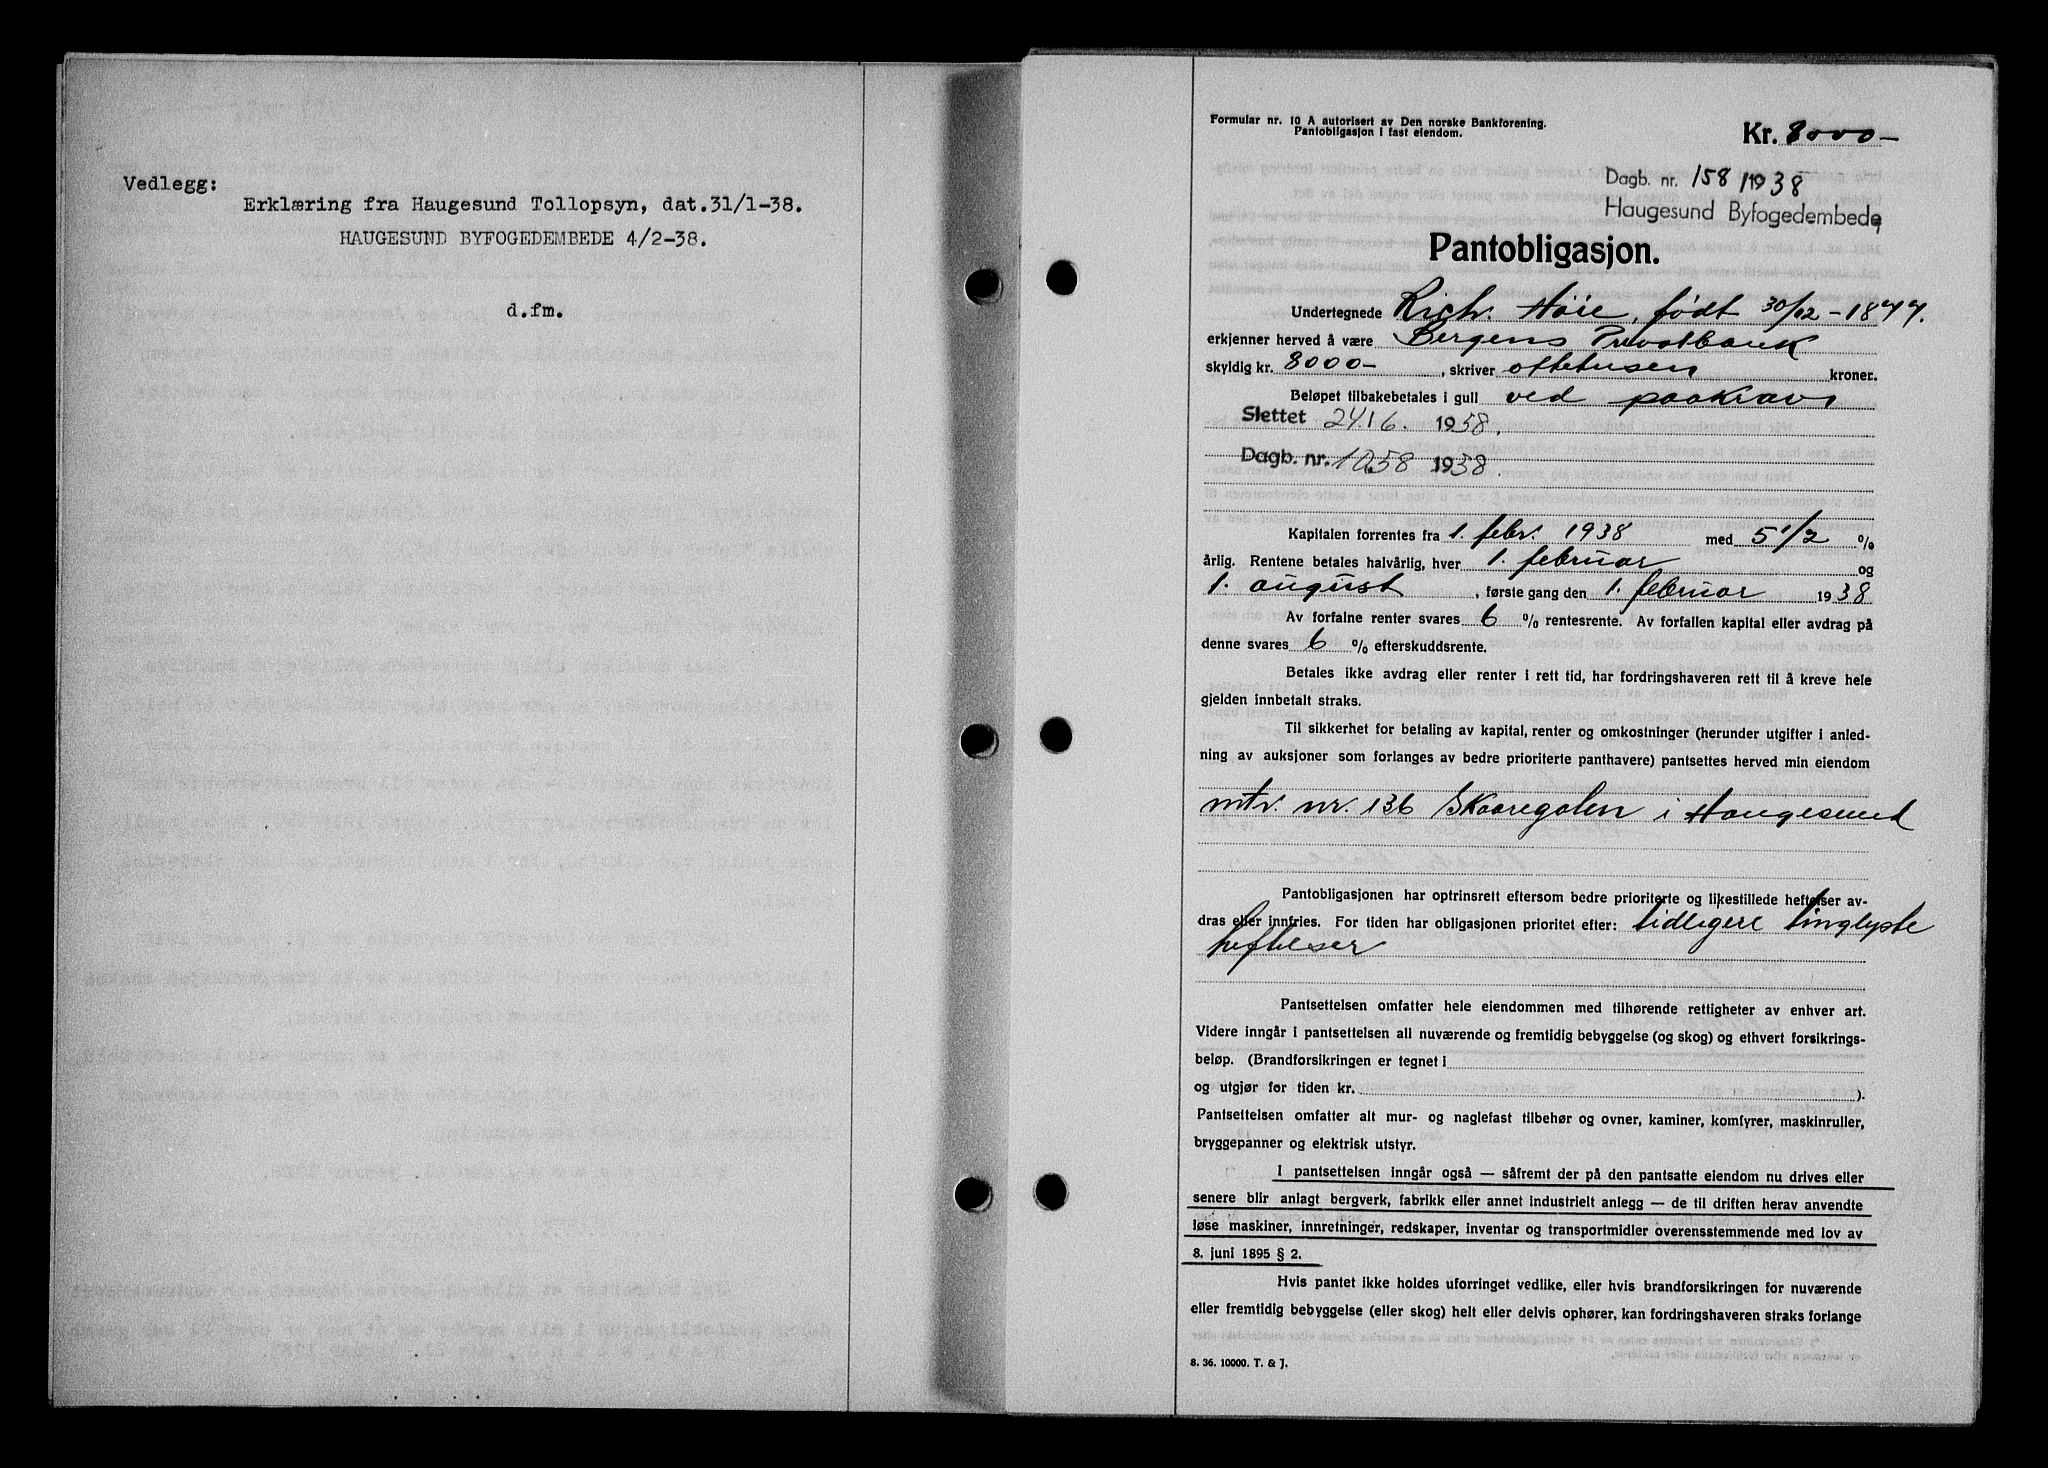 Vedlegg:
Erklæring fra Haugesund Tollopsyn, dat.31/1-38.
HAUGESUND BYFOGEDEMBEDE 4/2-38.
d.fm.
Formular nr. 10 A autorisert av Den norske Bankforening.
Pantobligasjon i fast eiendom.
Kr. 8000-
Dagb. nr. 158/1938
Haugesund Byfogedembede
Pantobligasjon.
Undertegnede Rich. Høie, født 30/12-1877.
erkjenner herved å være Bergens Privatbank
skyldig kr. 8000- , skriver ottetusen kroner.
Beløpet tilbakebetales i gull ved paakrav
Slettet 24/6. 1938.
Dagb. nr. 1058 1938.
Kapitalen forrentes fra 1. febr. 1938 med 5 1/2 %
årlig. Rentene betales halvårlig, hver 1. februar og
1. august , første gang den 1. februar 1938
Av forfalne renter svares 6 % rentesrente. Av forfallen kapital eller avdrag på
denne svares 6 % efterskuddsrente.
Betales ikke avdrag eller renter i rett tid, har fordringshaveren rett til å kreve hele
gjelden innbetalt straks.
Til sikkerhet for betaling av kapital, renter og omkostninger (herunder utgifter i anled-
ning av auksjoner som forlanges av bedre prioriterte panthavere) pantsettes herved min eiendom
mtr. nr. 136 Skaaregaten i Haugesund
Pantobligasjonen har optrinsrett eftersom bedre prioriterte og likestillede heftelser av-
dras eller innfries. For tiden har obligasjonen prioritet efter: tidligere tinglyste
heftelser
Pantsettelsen omfatter hele eiendommen med tilhørende rettigheter av enhver art.
Videre inngår i pantsettelsen all nuværende og fremtidig bebyggelse (og skog) og ethvert forsikrings-
beløp. (Brandforsikringen er tegnet i
og utgjør for tiden kr. ).
Pantsettelsen omfatter alt mur- og naglefast tilbehør og ovner, kaminer, komfyrer, maskinruller,
bryggepanner og elektrisk utstyr.
I pantsettelsen inngår også — såfremt der på den pantsatte eiendom nu drives eller
senere blir anlagt bergverk, fabrikk eller annet industrielt anlegg — de til driften herav anvendte
løse maskiner, innretninger, redskaper, inventar og transportmidler overensstemmende med lov av
8. juni 1895 § 2.
Hvis pantet ikke holdes uforringet vedlike, eller hvis brandforsikringen for nuværende
eller fremtidig bebyggelse (eller skog) helt eller delvis ophører, kan fordringshaveren straks forlange
8. 36. 10000. T. & J.